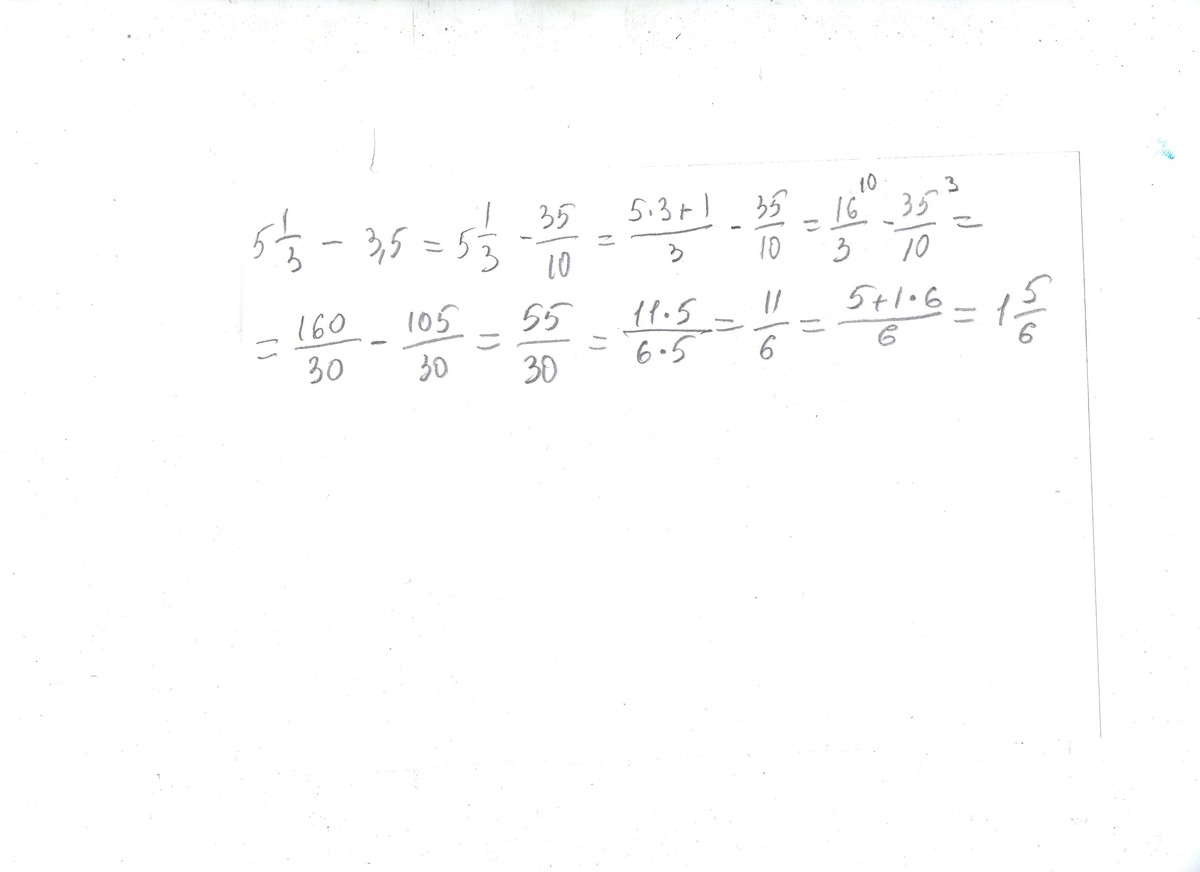 5 1/3 - 3,5 = 5 1/3 - 35/10 = (5·3+1)/3 - 35/10 = 16/3^10 - 35/10^3 =
= 160/30 - 105/30 = 55/30 = (11·5)/(6·5) = 11/6 = (5+1·6)/6 = 1 5/6